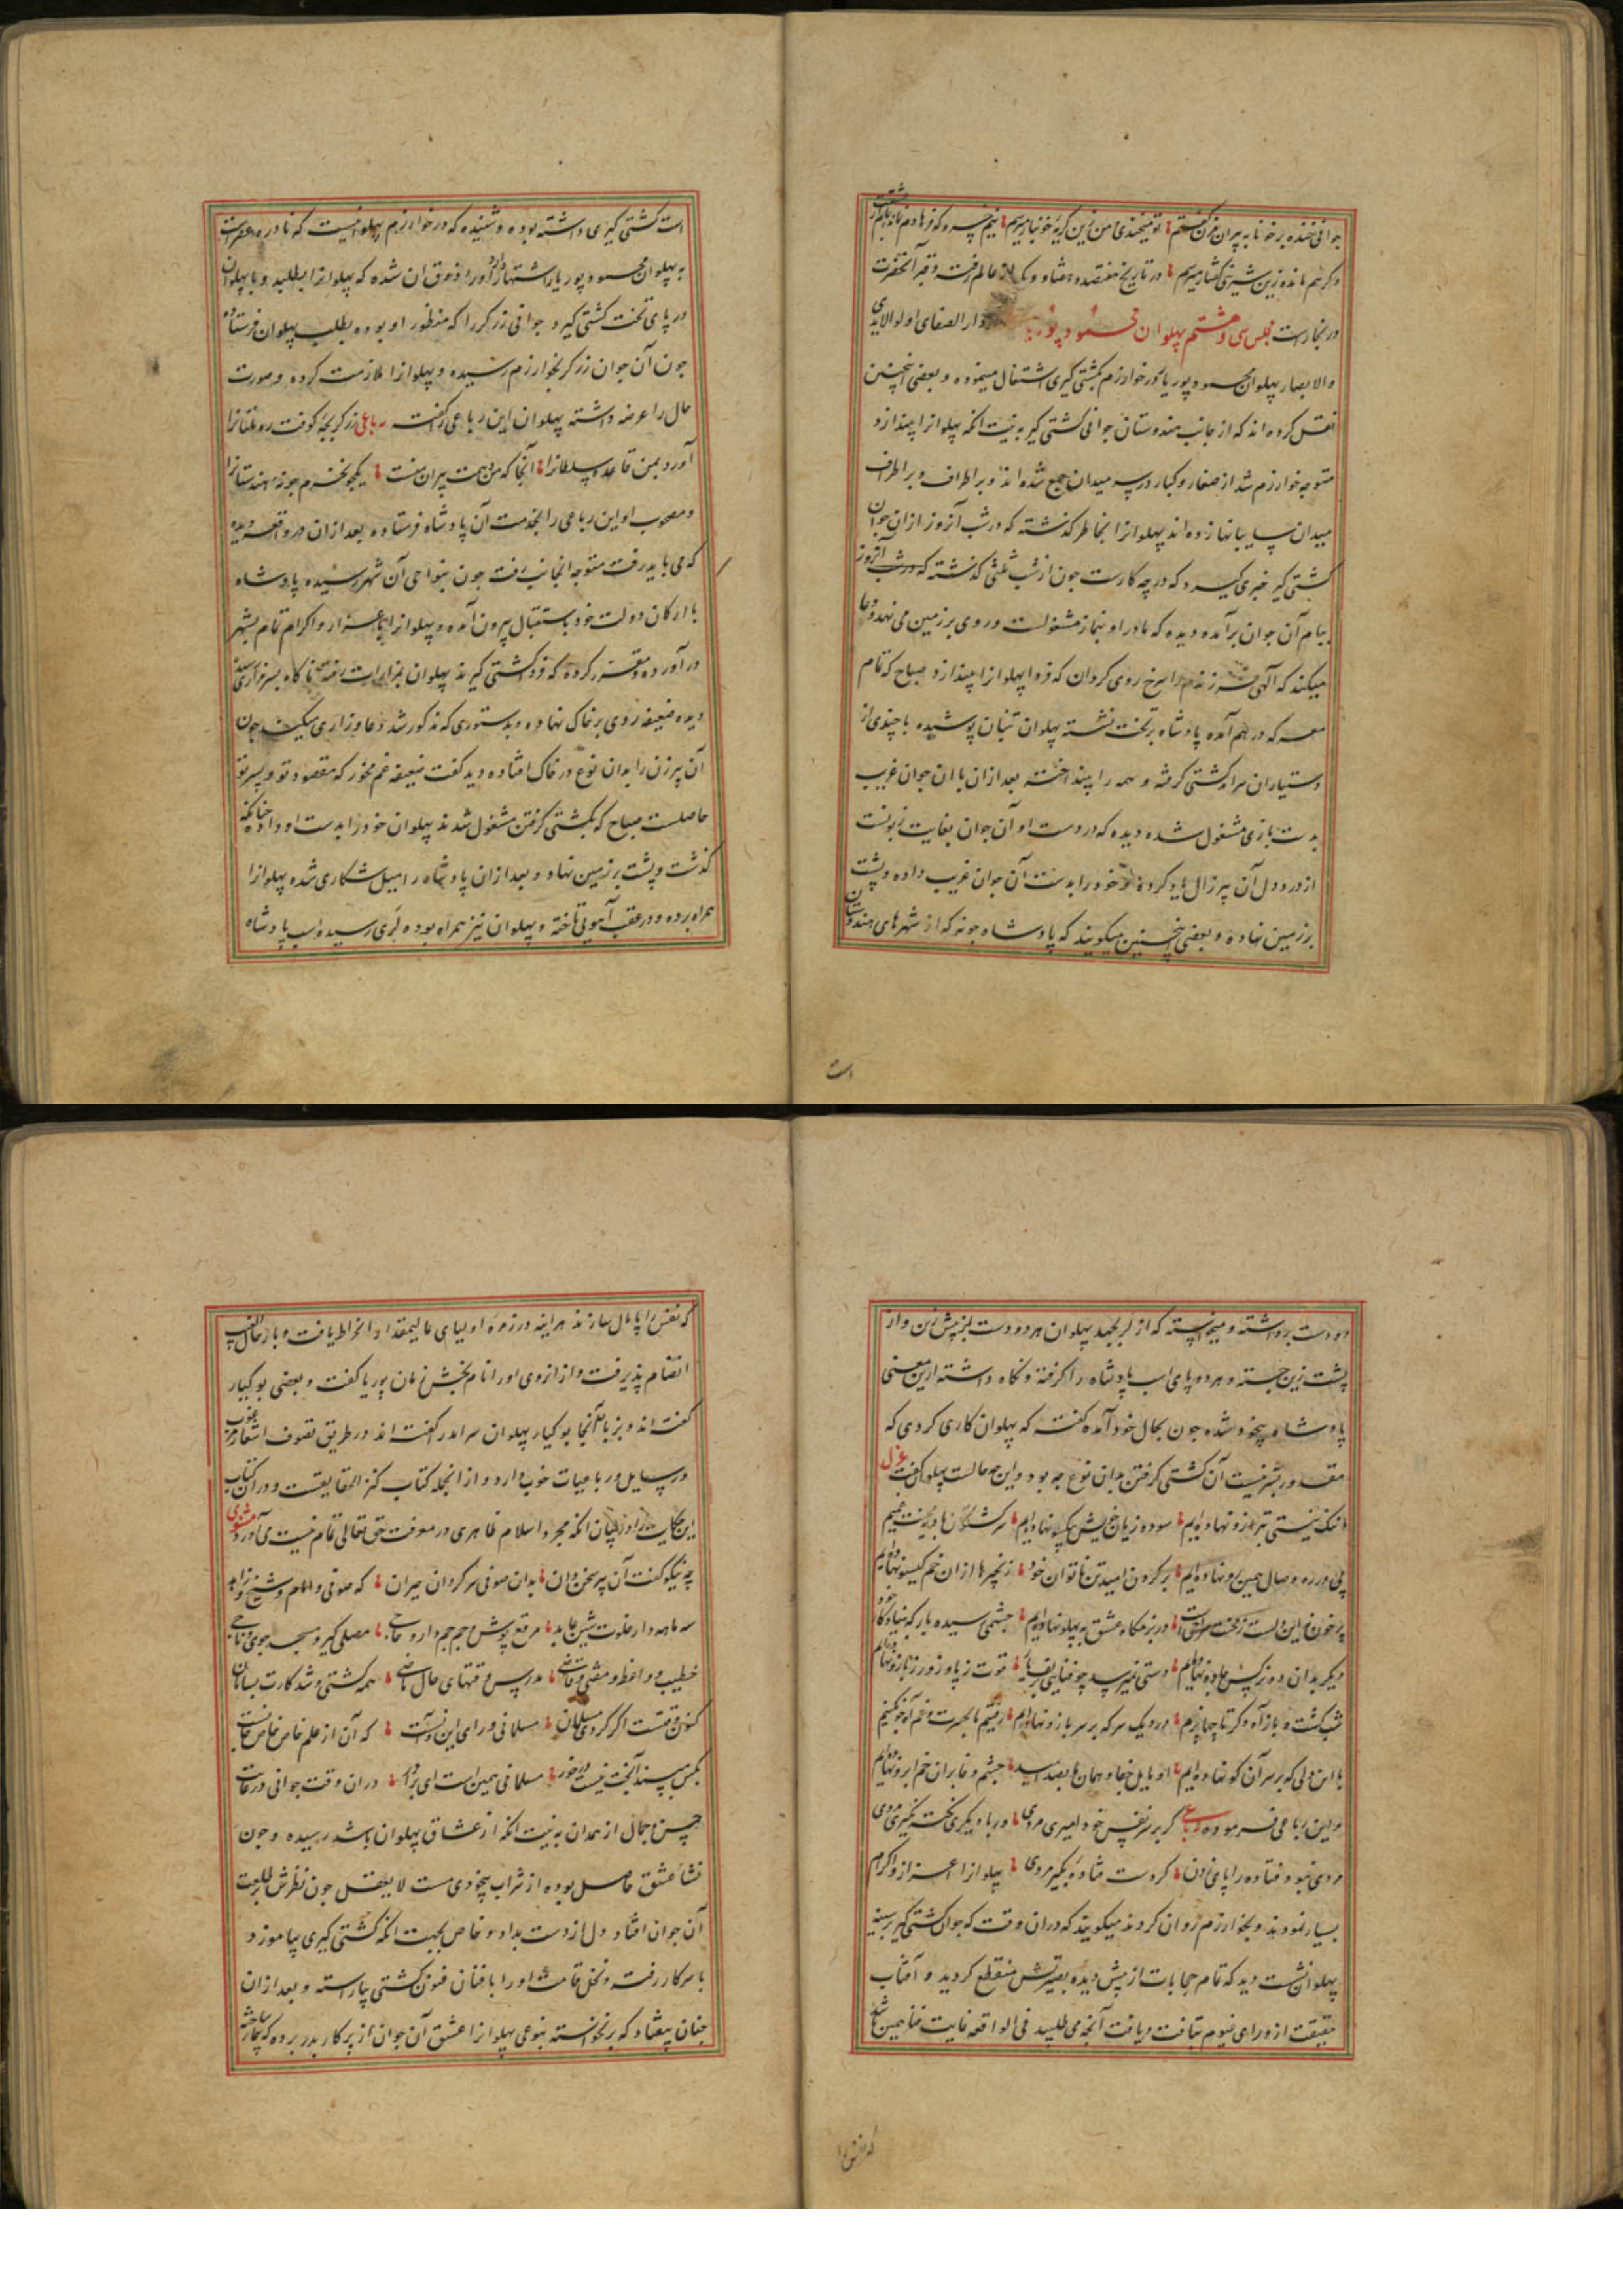 جوانی خنده بر خونابه پیران مزن گفتم تو میخندی و من زین گریه خونبار میترسم نیم خسرو که فرهادم
وگر هم مانده زین شیرین گفتار میترسم در تاریخ هفتصد و هشتاد و یک از عالم رفت و قبر آنحضرت
در بخارست مجلس سی و هشتم پهلوان محمود پور دار الصفای اولوالایدی
والابصار پهلوان محمود پور یا در خوارزم بکشتی گیری اشتغال مینموده و بعضی اینچنین
نقل کرده اند که از جانب هندوستان جوانی کشتی گیر به نیت انکه پهلوانرا بیندازد
متوجه خوارزم شد از صغار و کبار در سر میدان جمع شده اند و بر اطراف و بر اطراف
میدان سایبانها زده اند پهلوانرا بخاطر گذشته که در شب آنروز ازان جوان
کشتی گیر خبری گیرد که در چه کارست جون از شب ثلثی گذشته که در شب آنروز
ببام آن جوان برآمده دیده که مادر او بنماز مشغولست و روی بر زمین می نهد و دعا
میکند که الهی فرزندم را سرخ روی گردان که فردا پهلوانرا بیندازد صباح که تمام
معرکه درهم آمده پادشاه بر تخت نشسته پهلوان تنبان پوشیده با چندی از
دستیاران سرآمد کشتی گرفته و همه را بینداخته بعد ازان با ان جوان غریب
بدست بازی مشغول شده دیده که در دست او آن جوان بغایت زبونست
از درد دل آن پیر زال یاد کرده و خود را بدست آن جوان غریب داده و پشت
بر زمین نهاده و بعضی اینچنین میگویند که پادشاه جونه که از شهرهای هندوستان
است
است کشتی گیری داشته بوده و شنیده که در خوارزم پهلوانیست که نادره عصر است
به پهلوان محمود پور یار اشتهار دارد او را ذوق ان شده که پهلوانرا بطلبید و با پهلوان
در پای تخت کشتی گیرد جوانی زرگر را که منظور او بوده بطلب پهلوان فرستاده
جون آن جوان زرگر بخوارزم رسیده و پهلوانرا ملازمت کرده و صورت
حال را عرضه داشته پهلوان این رباعی را گفت رباعی زرگر بچۀ کوفت ره ملتانرا
آورد بمن قاعد سلطانرا آنجا که من و همت پیران منست یکجو نخرم جونه هندستانرا
و مصحوب او این رباعی را بخدمت آن پادشاه فرستاده بعد ازان در واقعه دیده
که می باید رفت متوجه انجانب رفت جون بنواحی آن شهر رسیده پادشاه
با ارکان دولت خود باستقبال بیرون آمده و پهلوانرا باعزاز و اکرام تمام بشهر
در آورده و مقرر کرده که فردا کشتی گیرند پهلوان بمزارات رفته ناگاه بسر مزاری رسیده
دیده ضعیفه روی بر خاک نهاده و بدستوری که مذکور شد دعا و زاری میکند جون
آن پیرزن را بدان نوع در خاک افتاده دید گفت ضعیفه غم مخور که مقصود تو و پسر تو
حاصلست صباح که بکشتی گرفتن مشغول شدند پهلوان خود را بدست او داد چنانکه
گذشت و پشت بر زمین نهاد و بعد ازان پادشاه را میل شکاری شده پهلوانرا
همراه برده و در عقب آهوئی تاخته و پهلوان نیز همراه بوده لری رسیده اسب پادشاه
دو دست برداشته و میخواسته که از لر بجهد پهلوان هر دو دست بر پیش زین و از
پشت زین جسته و هر دو پای اسب پادشاه را گرفته و نگاه داشته ازین معنی
پادشاه بیخود شده جون بحال خود آمده گفته که پهلوان کاری کردی که
مقدور بشر نیست آن کشتی گرفتن بدان نوع چه بود و این چه حالست پهلوان گفت غزل
نیستی بترازو نهاده ایم سود و زیان خویش بیکسو نهاده ایم
بر گردن امید تن ناتوان خود زنجیرها ازان خم گیسو نهاده ایم
پر خون این در بزمگاه عشق به پهلو نهاده ایم چشمی سیه
دیگر بدان دو نرگس جادو نهاده ایم دستی نمیرسد چو قوت ز پا و زور ز بازو نهاده ایم
در یک سر که بر سر بازو نهاده ایم رفتیم با حسرت و غم
با این دلی که بر سر آن کو نهاده ایم جشم وفا بران خم ابرو نهاده ایم
و این رباعی فرموده رباعی گر بر سر نفس خود امیری مردی ور با دیگری نکته نگیری مردی
مردی نبود فتاده را پای زدن گر دست فتادۀ بگیری مردی پهلوانرا اعزاز و اکرام
بسیار نمودند و بخوارزم روان کردند میگویند که دران وقت که جوان کشتی گیر بر سینه
پهلوان نشست دید که تمام حجابات از پیش دیده بصیرتش منقطع گردید و آفتاب
حقیقت از ورای غیوم بتافت و یافت آنچه می طلبید فی الواقعه غایت فنا همین باشد
که نفس را
که نفس را پامال سازند هراینه در زمره اولیای عالیمقدار انخراط یافت و با زحال
انضمام پذیرفت و از انروی او را نام بخش زمان پوریا گفت و بعضی بوکیار
گفته اند و بزبان آنجا بوکیار پهلوان سرامد را گفته اند در طریق تصوف اشعار مرغوب
و رسایل و رباعیات خوب دارد و از انجمله کتاب کنز الحقایقست و در ان کتاب
این حکایت را در بیان آنکه مجرد اسلام ظاهری در معرفت حق تعالی تمام نیست می آورد مثنوی
چه نیکو گفت آن پیر سخن دان بدان صوفی سرگردان حیران که صوفی و امام و شیخ و زاهد
سه ماهه دار خلوت شین عابد مرقع پوش مصلی گیر و مسجد جوی و تاجی
خطیب و واعظ و مفتی و قاضی مدرس و فتهای حال ماضی همه گشتی و شد کارت بسامان
کنون وقتست اگر گردی مسلمان مسلمانی ورای این و آنست که آن از علم خاص خاص
بکس مپسند آنچت نیست در خور مسلمانی همین است ای برادر دران وقت جوانی در غایت
حسن و جمال از همدان به نیت آنکه از عشاق پهلوان باشد رسیده و جون
نشاء عشق حاصل بوده از شراب بیخودی مست لایعقل جون نظرش بر طلعت
آن جوان افتاد دل از دست بداد و خاص بجهت آنکه کشتی گیری بیاموزد
با سرکار رفت و نخل قامتش او را با فنان فنون کشتی بیاراسته و بعد ازان
چنان بیفتاد که برنخواسته بنوعی پهلوانرا عشق آن جوان از پرکار بدر برده که بیمار ساخته